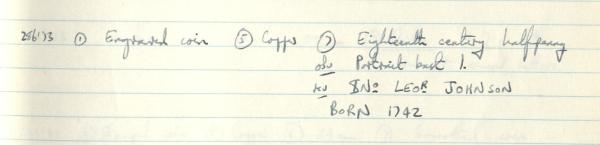 256133 ① Engraved coin ⑤ Copper ⑦ Eighteenth century halfpenny
obv Portrait bust l.
rev JNO LEOR JOHNSON
BORN 1742